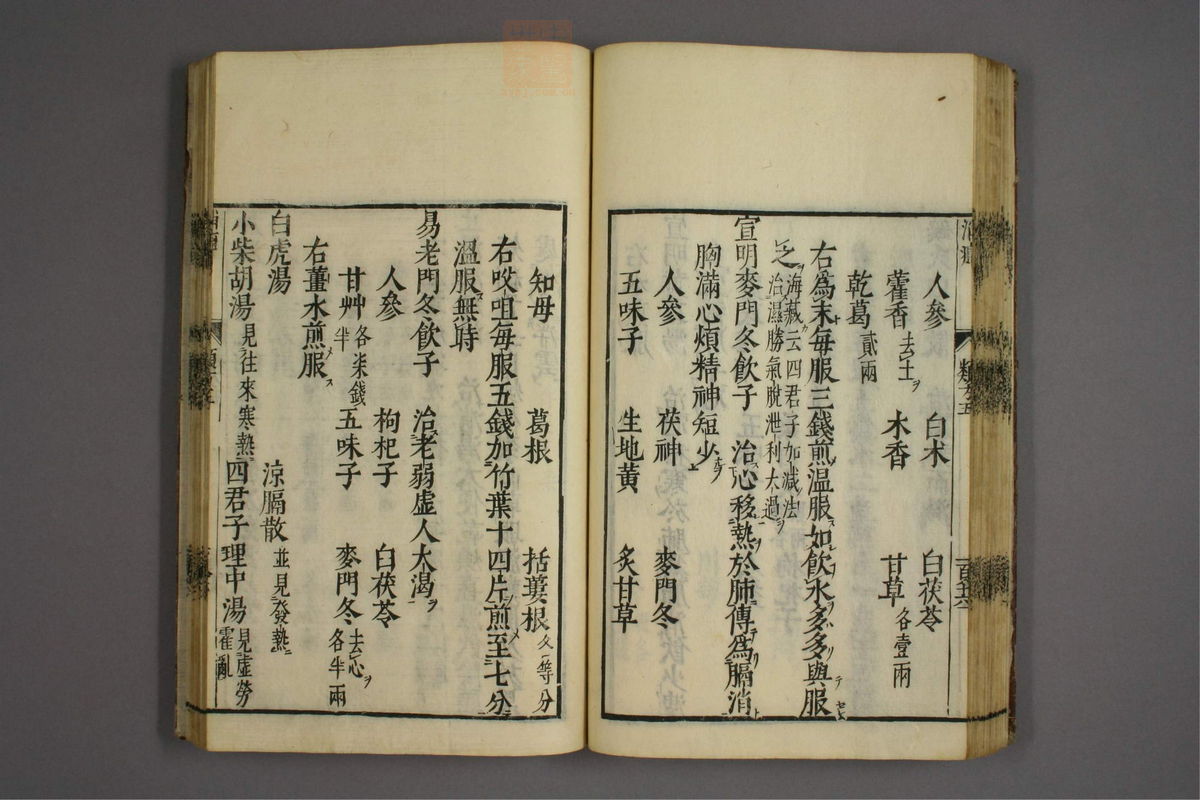 人參　白朮　白茯苓
藿香去土ヲ　木香　甘草各壹兩
乾葛貳兩
右為末每服三錢煎溫服如飲水多多與服
之海藏云四君子加減法治濕勝氣脫泄利太過
宣明麥門冬飲子　治心移熱於肺傳為膈消
胸滿心煩精神短少
人參　茯神　麥門冬
五味子　生地黃　炙甘草
知母　葛根　括蔞根各等分
右㕮咀每服五錢加竹葉十四片煎至七分
溫服無時
易老門冬飲子　治老弱虛人大渴
人參　枸杞子　白茯苓
甘艸各柒錢半　五味子　麥門冬去心ヲ各半兩
右薑水煎服
白虎湯　涼膈散並見發熱
小柴胡湯見往來寒熱　四君子理中湯見虛勞霍亂